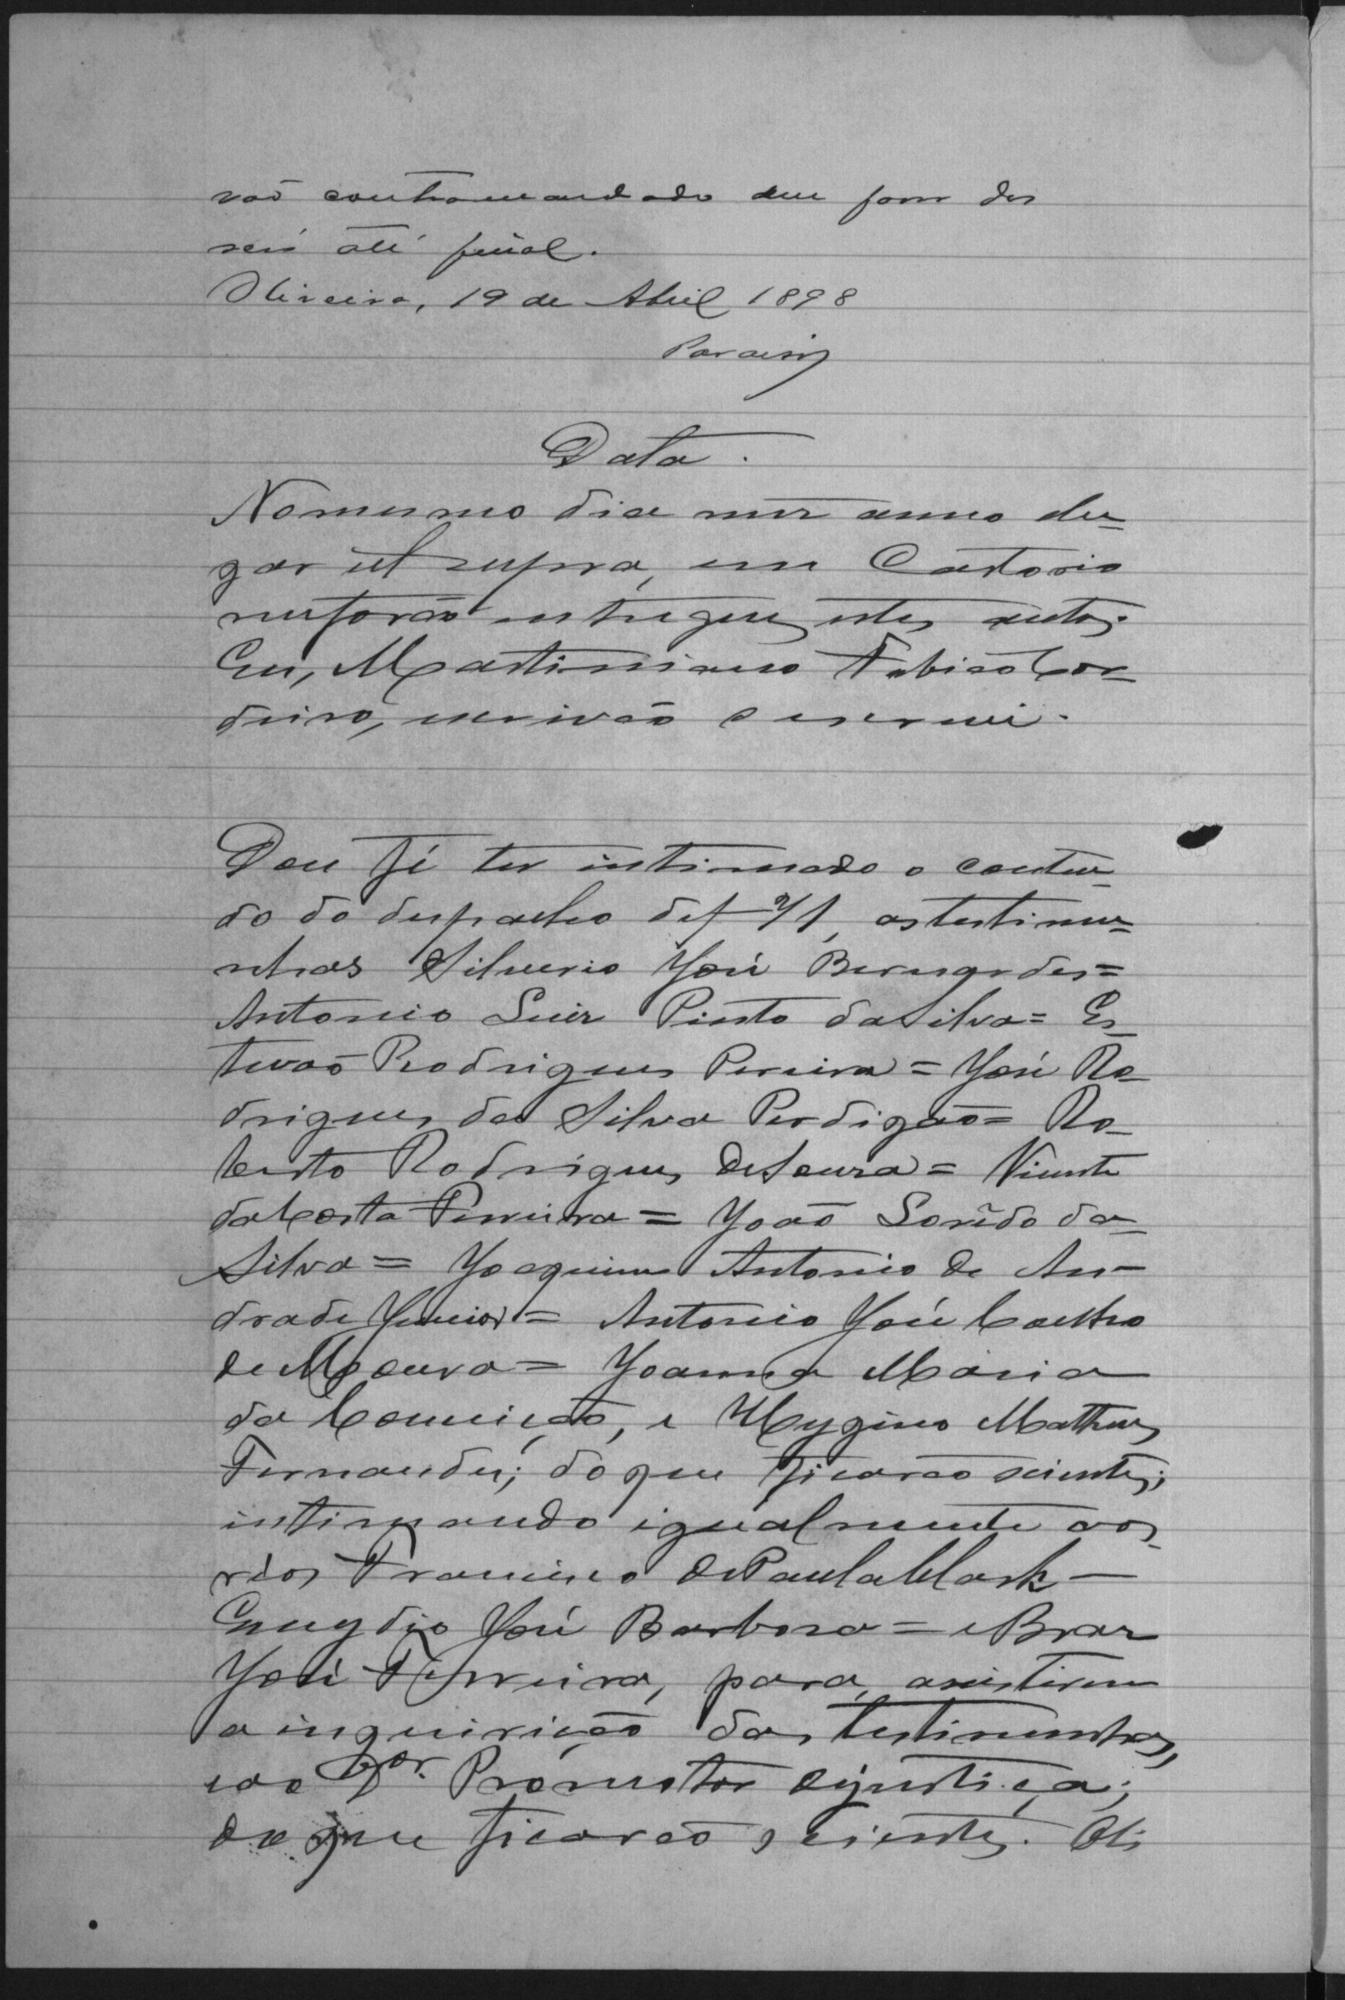 não contramandado em
seis até final.
Oliveira, 19 de Abril 1898
Paraiso
Data.
No mesmo dia mez anno lu=
gar ut supra, em Cartorio
me forão entregues estes autos.
Eu, Martiniano Fabião Cor=
deiro, escrivão o escrevi.
Dou fé ter intimado o conteu=
do do despacho de f , as testimu=
nhas Silverio José Bernardes=
Antonio Luiz Pinto da Silva= Es_
tevão Rodrigues Pereira = José Ro_
drigues da Silva Perdigão= Ro_
berto Rodrigues de Souza = Vicente
da Costa Ferreira = João da=
Silva = Joaquim Antonio de An-
drade Junior = Antonio José Coelho
de Moura = Joanna Maria
da Conceição, e Hygino Matheus
Fernandes; do que ficarão scientes;
intimando igualmente aos
réos Francisco de Paula —
Emygdio José Barbosa = e Braz
José Ferreira, para assistirem
a inquirição das testimunhas,
e ao Dor. Promotor de justiça;
do que ficarão scientes. Oli